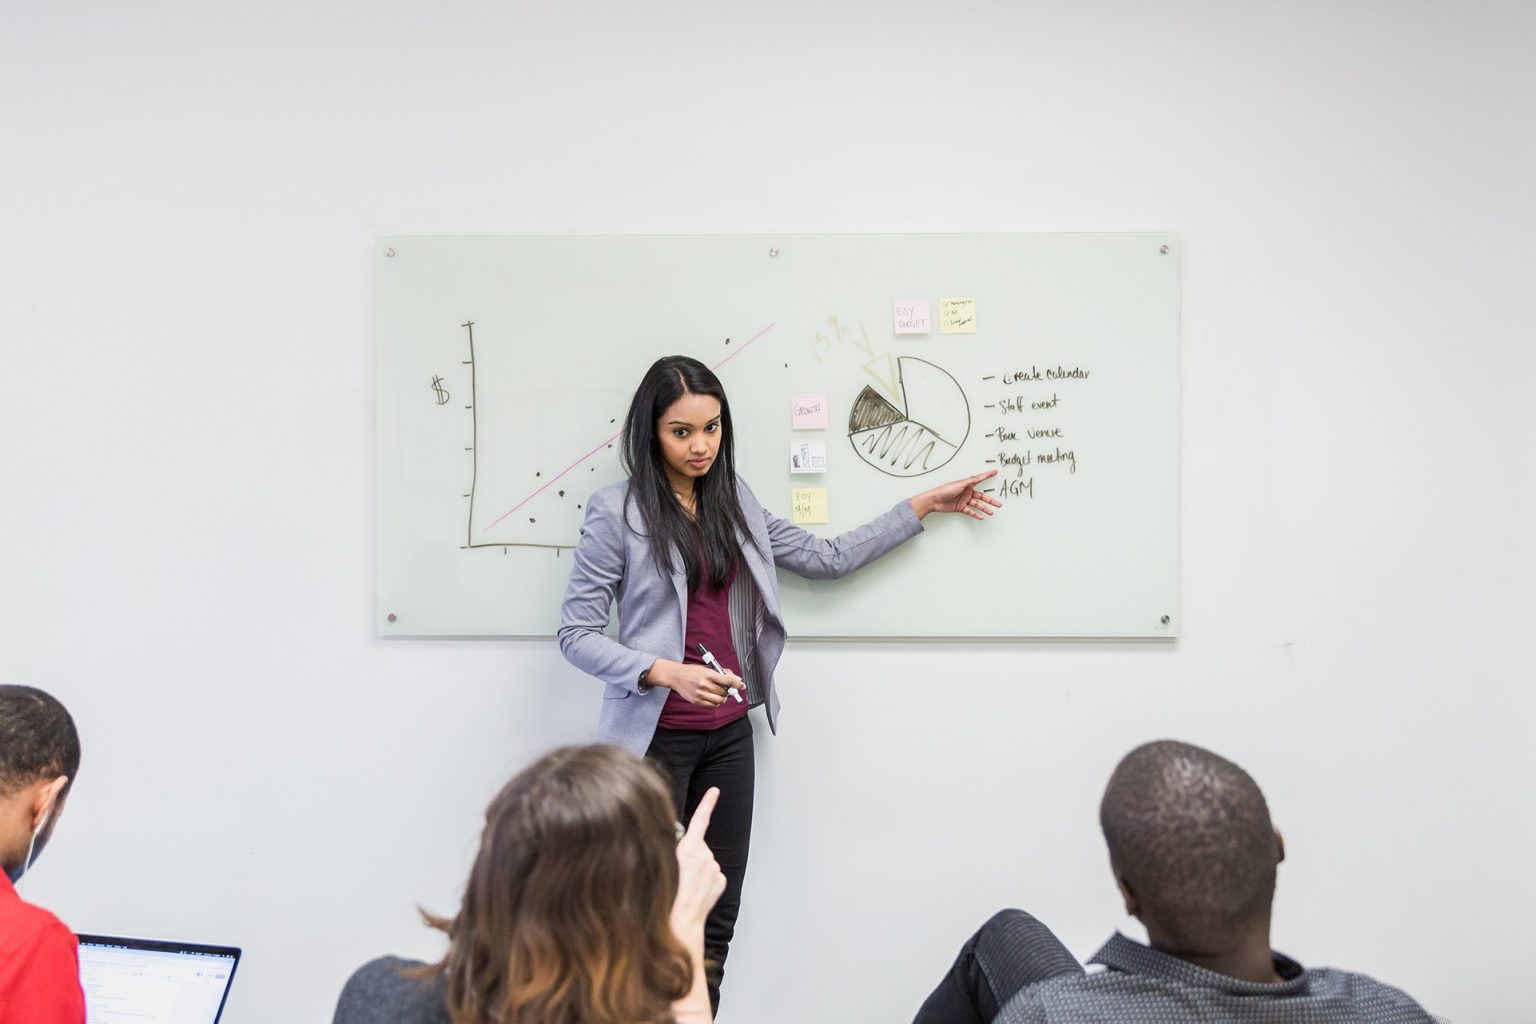 $
15%
EOY
TARGET
GROWTH
EOY
M/M
- Create calendar
- Staff event
- Book venue
- Budget meeting
- AGM